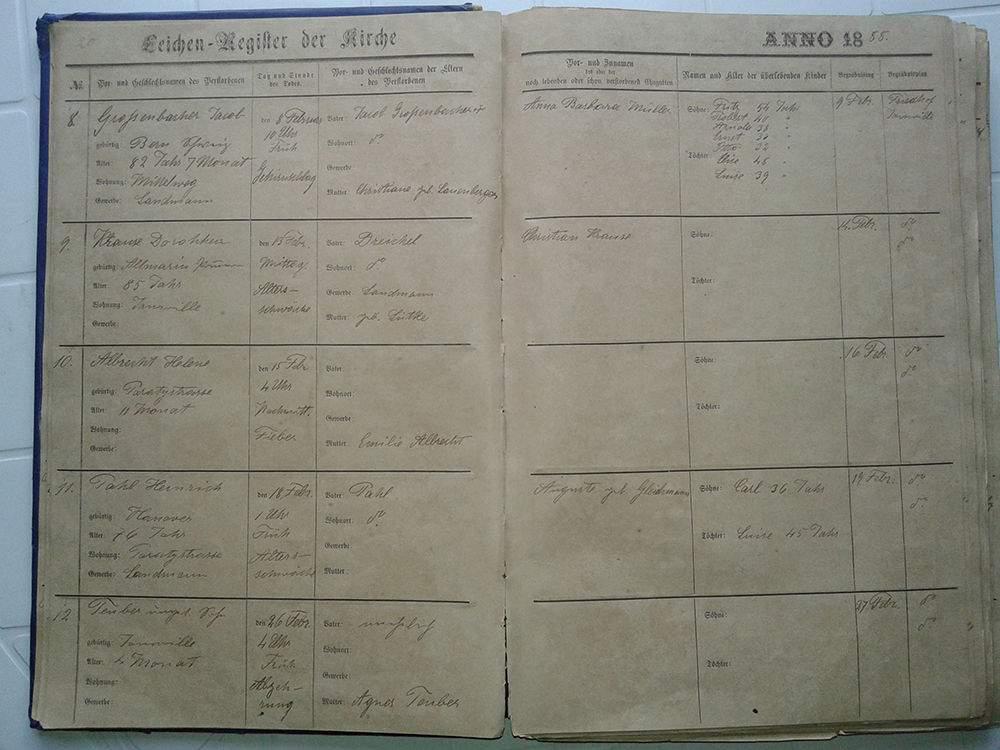 Leichen-Register der Kirche
ANNO 1888.
№ Vor- und Geschlechtsnamen des Verstorbenen Tag und Stunde des Todes. Vor- und Geschlechtsnamen der Eltern des Verstorbenen
Vor- und Zunamen des oder der noch lebenden oder schon verstorbenen Ehegatten Namen und Alter der überlebenden Kinder Begräbnistag Begräbnisplatz
8. Großenbacher Jacob den 8 Februar Vater: Jacob Großenbacher
10 Uhr
gebürtig: Bern Früh Wohnort: do
Alter: 82 Jahr 7 Monat Gewerbe:
Wohnung: Mittelweg Gehirnschlag
Gewerbe: Landmann Mutter: Christiane geb.
Anna Barbara Müller Söhne: Fritz 54 Jahr 9 Febr. Friedhof
Robert 40 " Joinville
Arnold 38 "
Ernst 36 "
Otto 32 "
Töchter: Elise 48 "
Luise 39 "
9. Krause Dorothea den 13 Febr. Vater: Dreichel
gebürtig: Mittag Wohnort: do
Alter: 85 Jahr Alters- Gewerbe Landmann
Wohnung: Joinville schwäche
Gewerbe: Mutter: geb. Lütke
Christian Krause Söhne: 14 Febr. do
do
Töchter:
10. Albrecht Helene den 15 Febr Vater:
gebürtig: Paratystrasse 4 Uhr Wohnort:
Alter: 11 Monat Nachmitt. Gewerbe
Wohnung: Fieber
Gewerbe: Mutter: Emilie Albrecht
Söhne: 16 Febr. do
do
Töchter:
11. Pahl Heinrich den 18 Febr. Vater: Pahl
gebürtig: Hanover 1 Uhr Wohnort: do
Alter: 76 Jahr Früh Gewerbe:
Wohnung: Paratystrasse Alters-
Gewerbe: Landmann schwäche Mutter:
Auguste geb. Söhne: Carl 36 Jahr 19 Febr. do
do
Töchter: Luise 45 Jahr
12 Teuber den 26 Febr. Vater: unehelich
gebürtig: Joinville 4 Uhr Wohnort:
Alter: 4 Monat Früh Gewerbe:
Wohnung: Abzeh-
Gewerbe: rung Mutter: Agnes Teuber
Söhne: 27 Febr. do
do
Töchter: